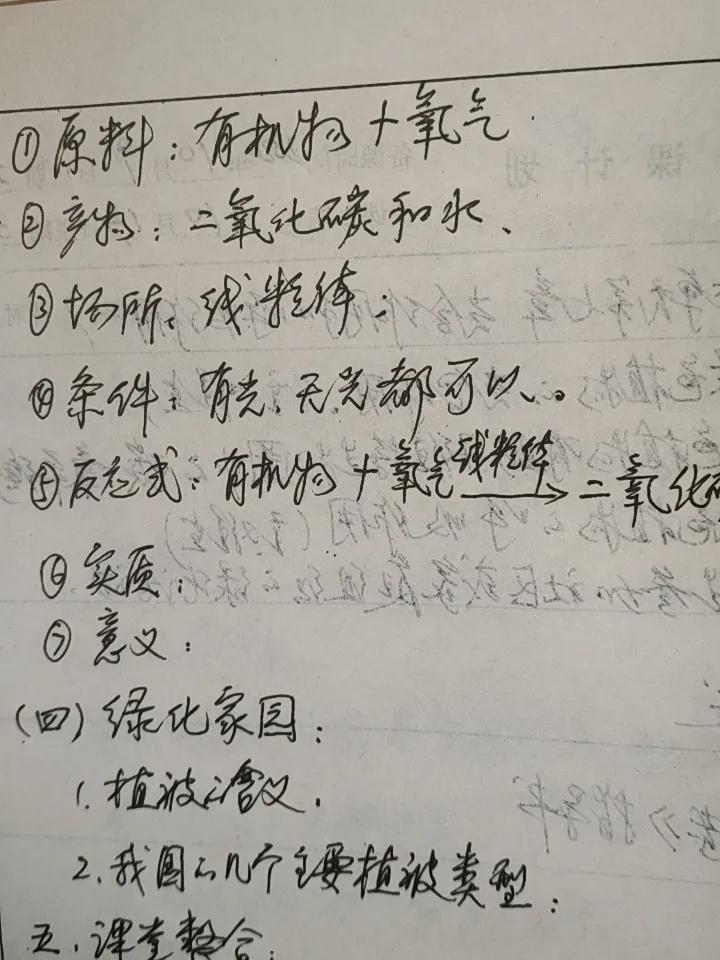 ①原料：有机物＋氧气.
②产物：二氧化碳和水、
③场所：线粒体；
④条件：有光、无光都可以。
⑤反应式：有机物＋氧气 线粒体→ 二氧化碳
⑥实质：
⑦意义：
(四)绿化家园：
1.植被的含义.
2.我国的几个主要植被类型：
五.课堂整合：